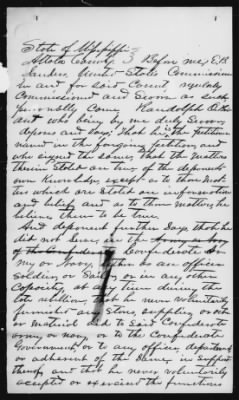 State of Mississippi
Attala County } Before me, E.B.
Sanders, United States Commissioner
in and for said County regularly
Commissioned and Sworn as such
personally Came Randolph
and who being by me duly Sworn
deposes and Says; That he is the Petitioner
named in the foregoing Petition, and
who signed the same; that the Matters
therein Stated are true, of the deponents
own knowledge except as to those Mat-
ters which are stated on information
and belief and as to those matters, he
believes them to be true.
And deponent further Says that he
did not serve in the Army or Navy
of the Confederate Confederate Ar-
my or Navy, either as an officer
Soldier or Sailor, or in any other
Capacity, at any time during the
late rebellion; that he never voluntarily
furnished any Stores, supplies or
or material aid to Said Confederate
army or navy, or to the Confederate
Government or to any officer, department
or adherent of the Same, in support
thereof and that he never voluntarily
accepted or exercised the functions